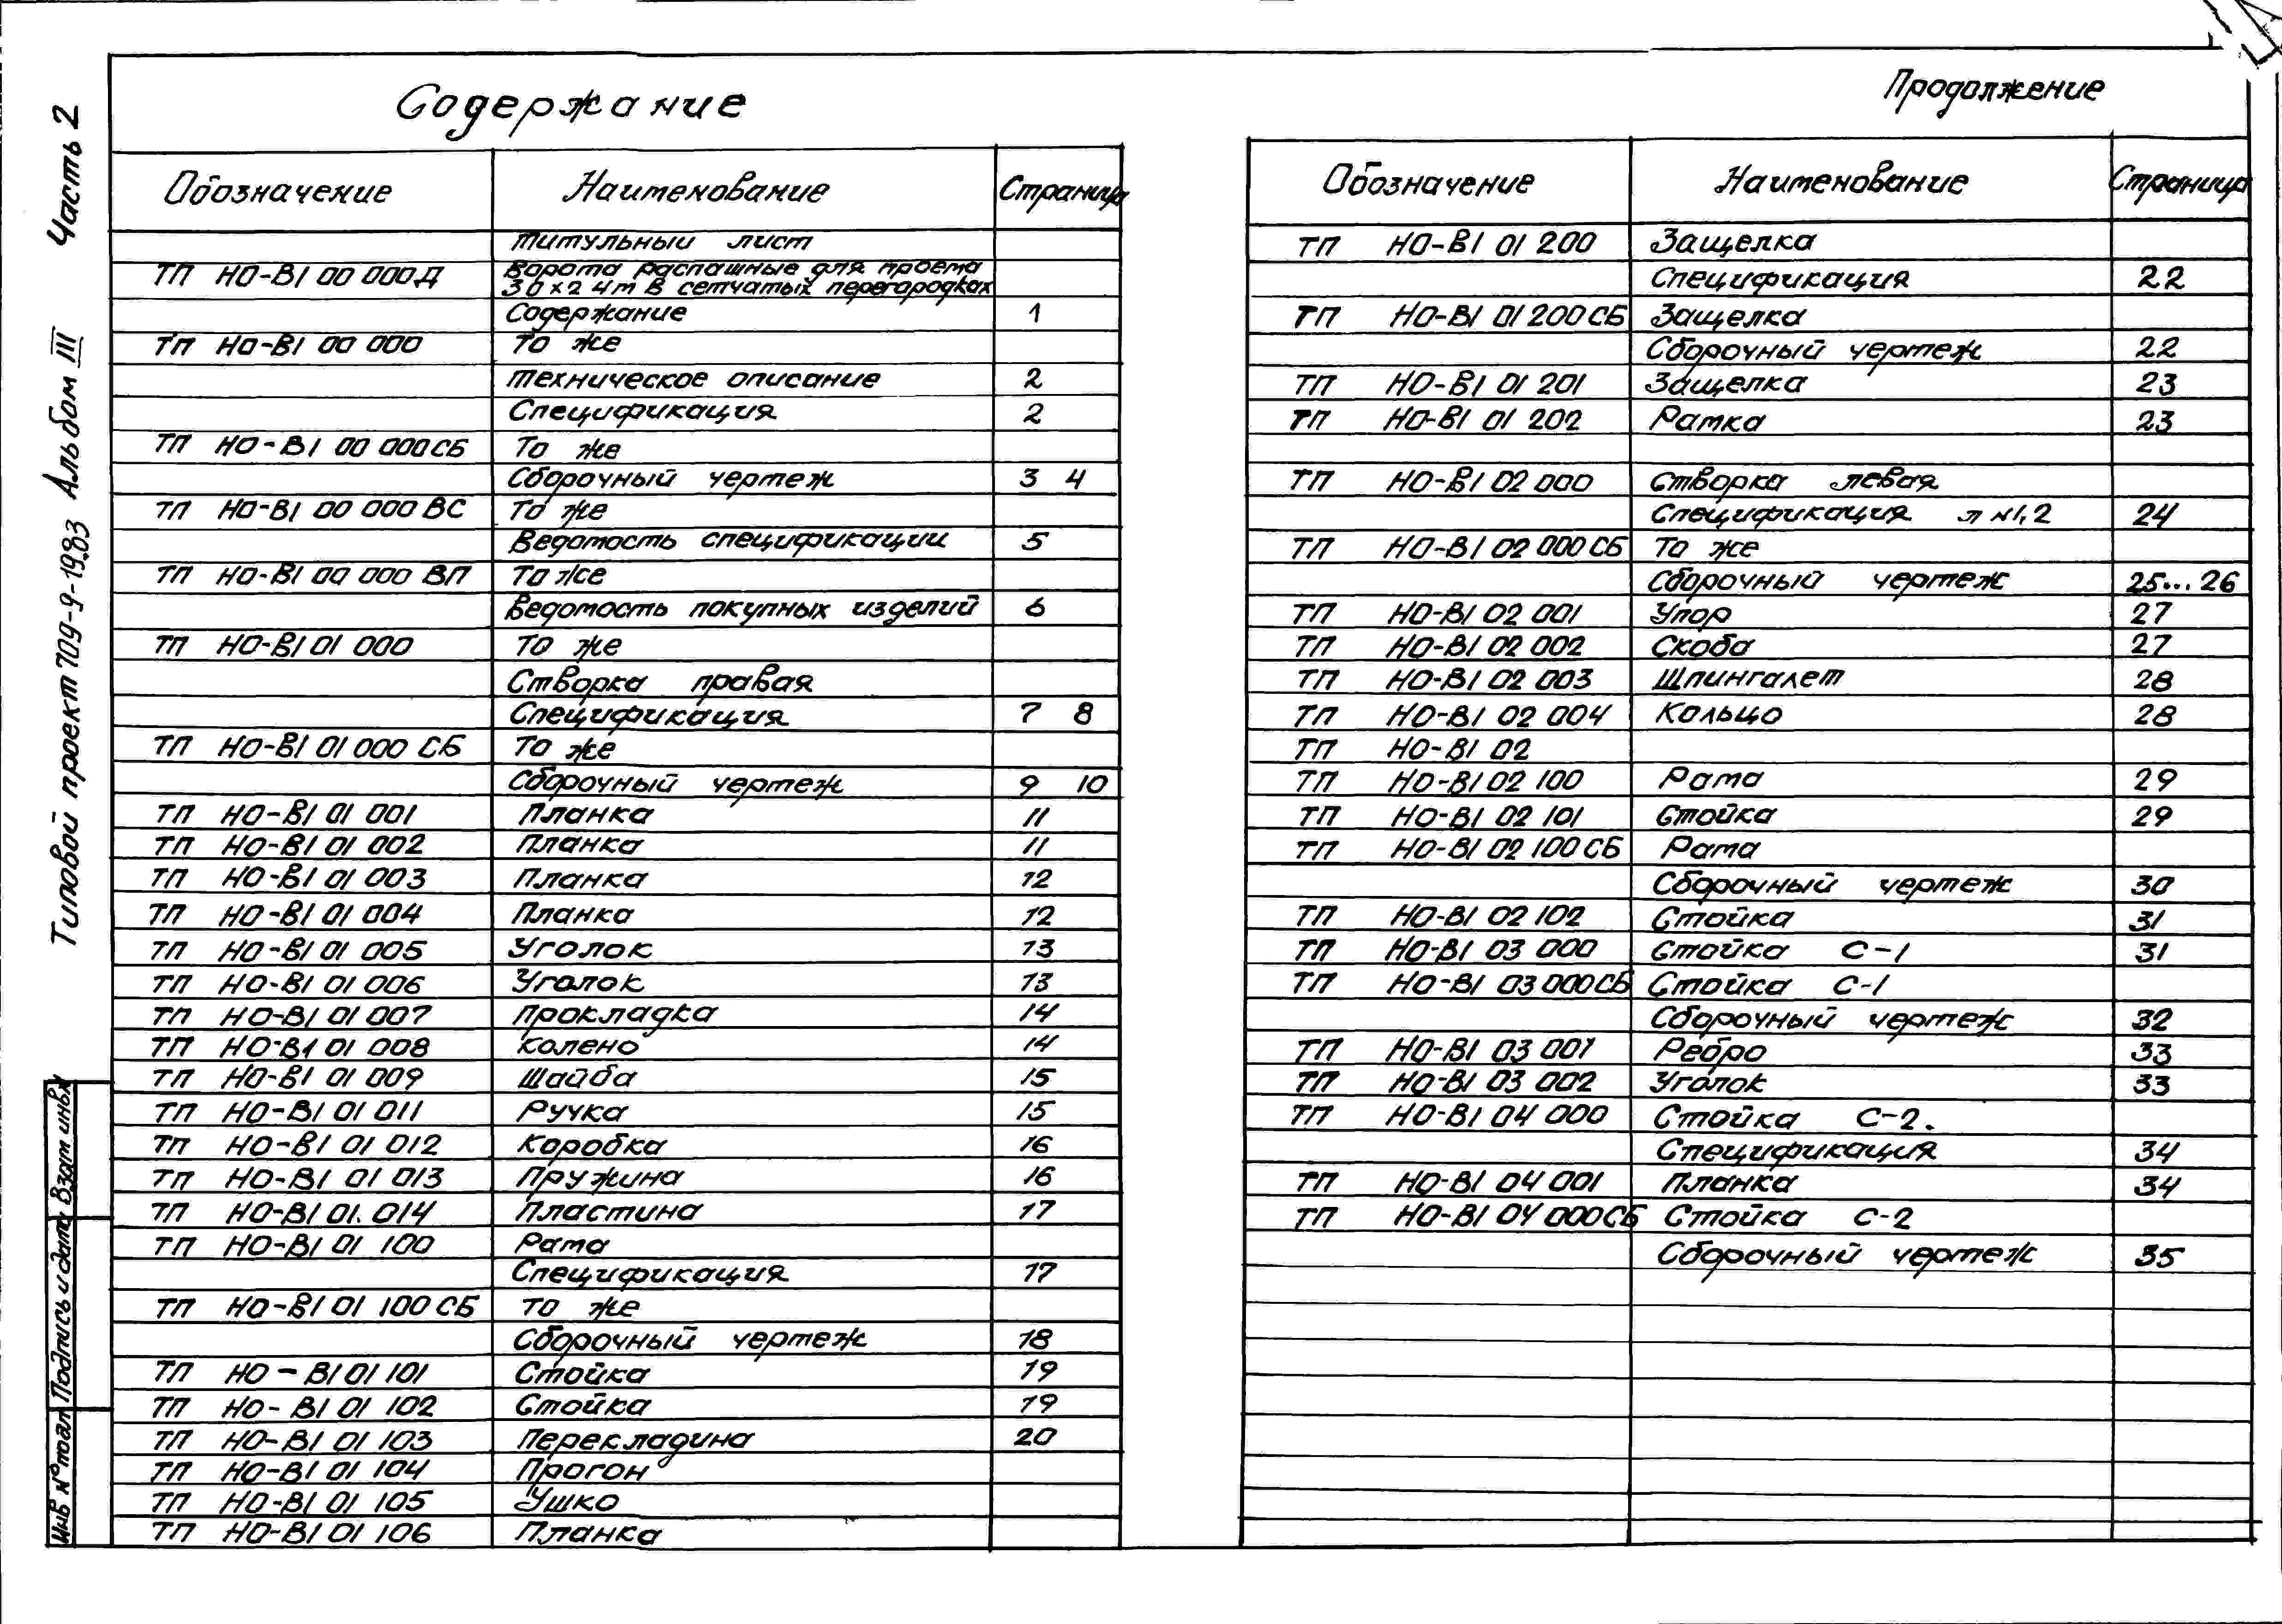 Содержание
Обозначение Наименование Страница
Титульный лист
ТП НО-В1 00 000Д Ворота распашные для проема
3 0×2 4м в сетчатых перегородках
Содержание 1
ТП НО-В1 00 000 То же
Техническое описание 2
Спецификация 2
ТП НО-В1 00 000СБ То же
Сборочный чертеж 3 4
ТП НО-В1 00 000 ВС То же
Ведомость спецификации 5
ТП НО-В1 00 000 ВП То же
Ведомость покупных изделий 6
ТП НО-В1 01 000 То же
Створка правая
Спецификация 7 8
ТП НО-В1 01 000 СБ То же
Сборочный чертеж 9 10
ТП НО-В1 01 001 Планка 11
ТП НО-В1 01 002 Планка 11
ТП НО-В1 01 003 Планка 12
ТП НО-В1 01 004 Планка 12
ТП НО-В1 01 005 Уголок 13
ТП НО-В1 01 006 Уголок 13
ТП НО-В1 01 007 Прокладка 14
ТП НО-В1 01 008 Колено 14
ТП НО-В1 01 009 Шайба 15
ТП НО-В1 01 011 Ручка 15
ТП НО-В1 01 012 Коробка 16
ТП НО-В1 01 013 Пружина 16
ТП НО-В1 01. 014 Пластина 17
ТП НО-В1 01 100 Рама
Спецификация 17
ТП НО-В1 01 100 СБ То же
Сборочный чертеж 18
ТП НО-В1 01 101 Стойка 19
ТП НО-В1 01 102 Стойка 19
ТП НО-В1 01 103 Перекладина 20
ТП НО-В1 01 104 Прогон
ТП НО-В1 01 105 Ушко
ТП НО-В1 01 106 Планка
Продолжение
Обозначение Наименование Страница
ТП НО-В1 01 200 Защелка
Спецификация 22
ТП НО-В1 01 200 СБ Защелка
Сборочный чертеж 22
ТП НО-В1 01 201 Защелка 23
ТП НО-В1 01 202 Рамка 23
ТП НО-В1 02 000 Створка левая
Спецификация л №1, 2 24
ТП НО-В1 02 000 СБ То же
Сборочный чертеж 25... 26
ТП НО-В1 02 001 Упор 27
ТП НО-В1 02 002 Скоба 27
ТП НО-В1 02 003 Шпингалет 28
ТП НО-В1 02 004 Кольцо 28
ТП НО-В1 02
ТП НО-В1 02 100 Рама 29
ТП НО-В1 02 101 Стойка 29
ТП НО-В1 02 100 СБ Рама
Сборочный чертеж 30
ТП НО-В1 02 102 Стойка 31
ТП НО-В1 03 000 Стойка С-1 31
ТП НО-В1 03 000СБ Стойка С-1
Сборочный чертеж 32
ТП НО-В1 03 001 Ребро 33
ТП НО-В1 03 002 Уголок 33
ТП НО-В1 04 000 Стойка С-2.
Спецификация 34
ТП НО-В1 04 001 Планка 34
ТП НО-В1 04 000СБ Стойка С-2
Сборочный чертеж 35
Типовой проект 709-9-19.83 Альбом III Часть 2
Инв № подл Подпись и дата Взам инв №